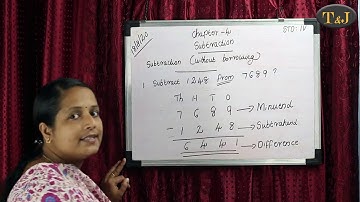 T&J
Chapter-4
STD: IV
Subtraction
Subtraction (without borrowing)
1 Subtract 1248 from 7689?
Th H T O
7 6 8 9 → Minuend
- 1 2 4 8 → Subtrahend
6 4 4 1 → Difference